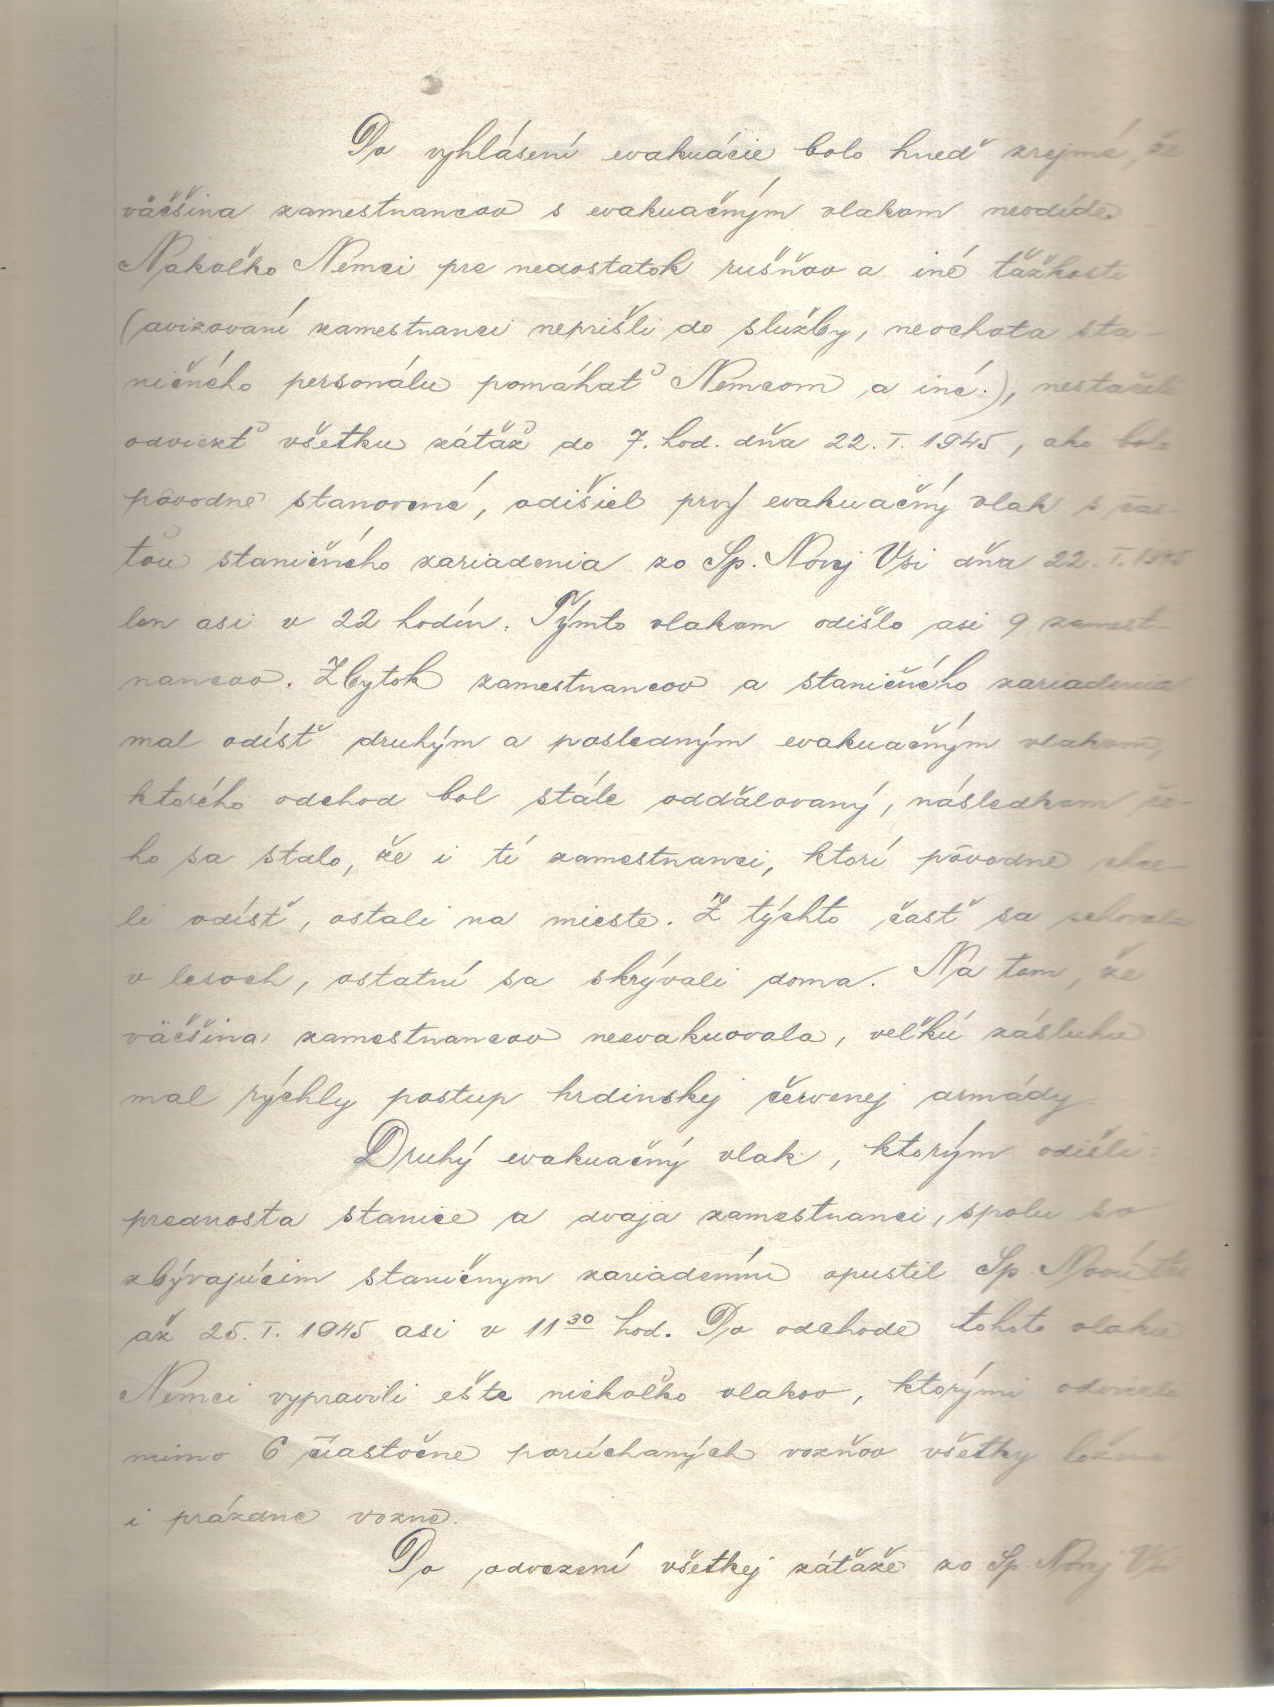 Po vyhlásení evakuácie bolo hneď zrejmé, že
väčšina zamestnancov s evakuačným vlakom neodíde.
Nakoľko Nemci pre nedostatok rušňov a iné ťažkosti
(avizovaní zamestnanci neprišli do služby, neochota sta-
ničného personálu pomáhať Nemcom a iné.), nestačili
odviezť všetku záťaž do 7. hod. dňa 22. I. 1945, ako bolo
pôvodne stanovené, odišiel prvý evakuačný vlak s čas-
ťou staničného zariadenia zo Sp. Novej Vsi dňa 22. I. 1945
len asi v 22 hodín. Týmto vlakom odišlo asi 9 zamest-
nancov. Zbytok zamestnancov a staničného zariadenia
mal odísť druhým a posledným evakuačným vlakom,
ktorého odchod bol stále odďalovaný, následkom če-
ho sa stalo, že i tí zamestnanci, ktorí pôvodne chce-
li odísť, ostali na mieste. Z týchto časť sa schovala
v lesoch, ostatní sa skrývali doma. Na tom, že
väčšina zamestnancov neevakuovala, veľkú zásluhu
mal rýchly postup hrdinskej červenej armády.
Druhý evakuačný vlak, ktorým odišli:
prednosta stanice a dvaja zamestnanci, spolu so
zbývajúcim staničnym zariadením opustil Sp. Novú
až 25. I. 1945 asi v 11³⁰ hod. Po odchode tohoto vlaku
Nemci vypravili ešte niekoľko vlakov, ktorými odviezli
mimo 6 čiastočne porúchaných vozňov všetky ložené
i prázdne vozne.
Po odvezení všetkej záťaže zo Sp. Novej Vsi